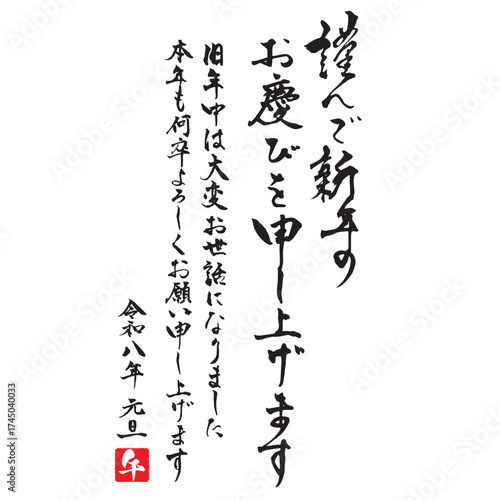 謹んで新年の
お慶びを申し上げます
旧年中は大変お世話になりました
本年も何卒よろしくお願い申し上げます
令和八年 元旦
午
Adobe Stock | #1745040033